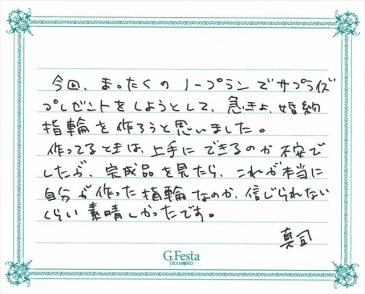 今回、まったくのノープランでサプライズ
プレゼントをしようとして、急きょ、婚約
指輪を作ろうと思いました。
作ってるときは、上手にできるのか不安で
したが、完成品を見たら、これが本当に
自分が作った指輪なのか、信じられない
くらい素晴しかったです。
真司
G.Festa
DIAMOND